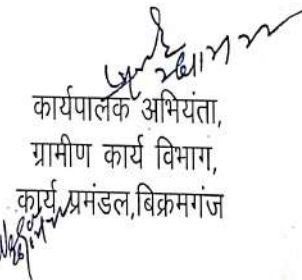 कार्यपालक अभियंता,
ग्रामीण कार्य विभाग,
कार्य प्रमंडल,बिक्रमगंज